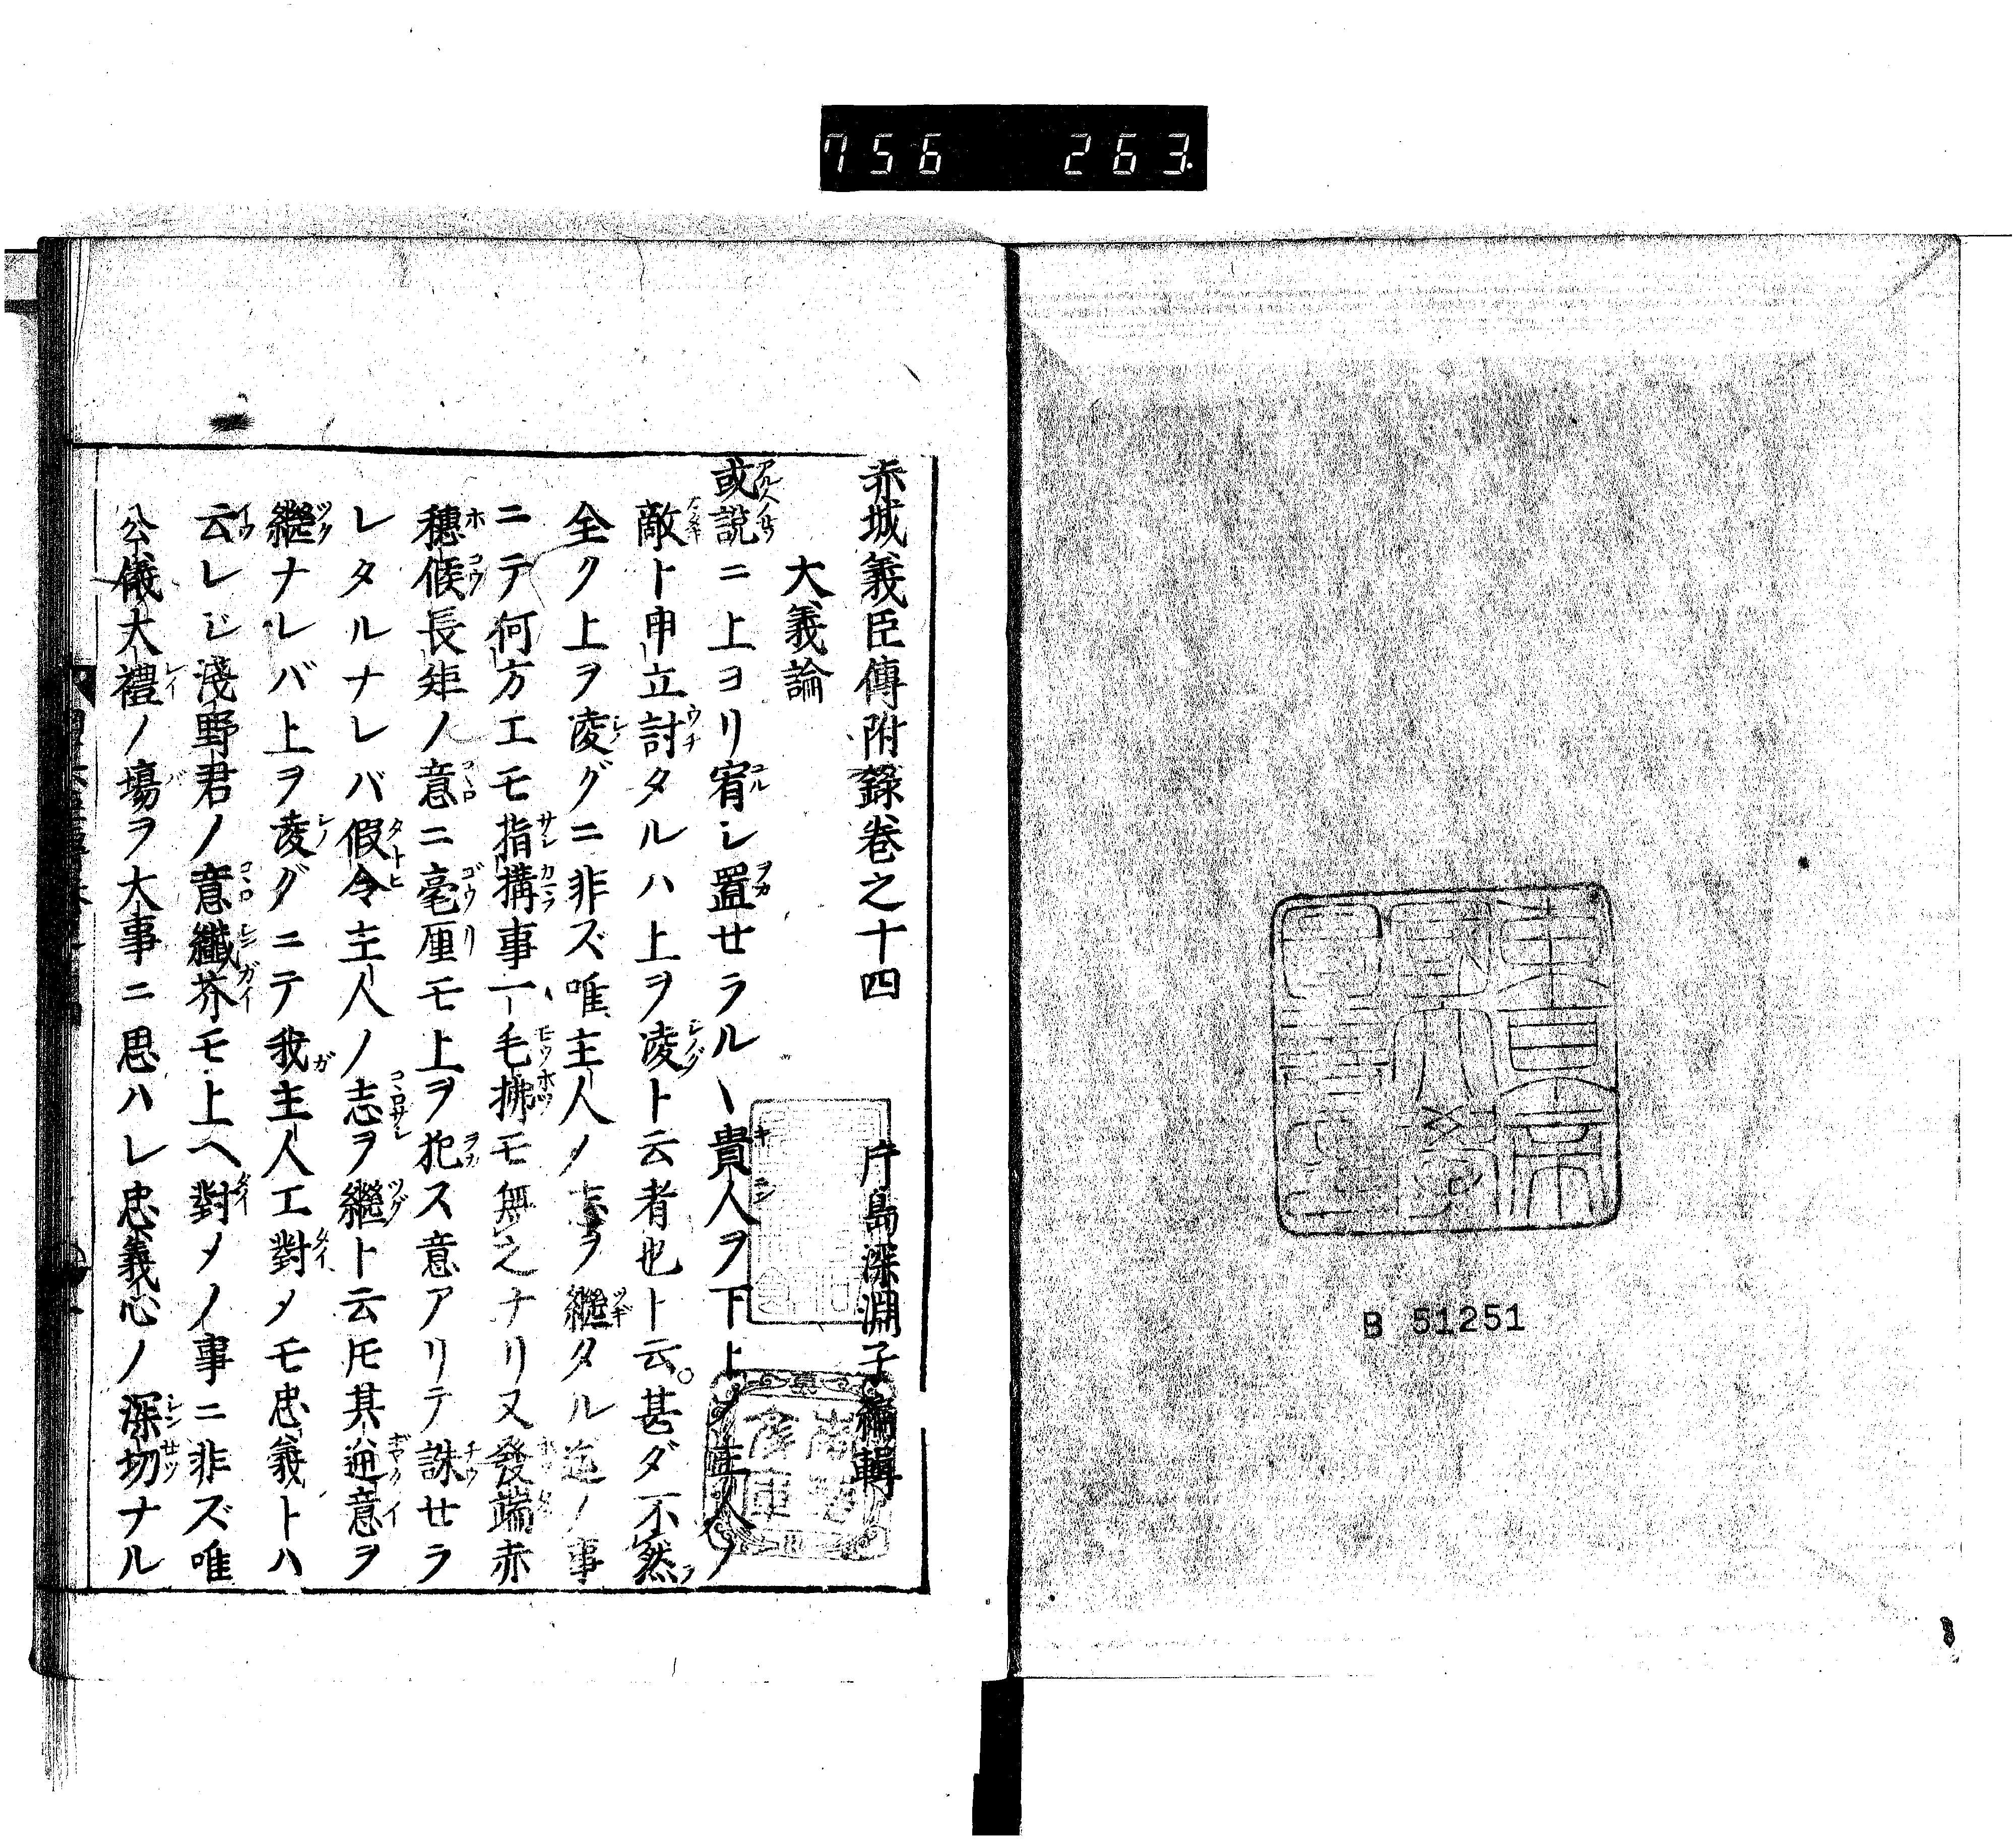 756 263
東京帝國大學圖書印
B 51251
赤城義臣傳附錄卷之十四
片島深淵子編輯
大義論
或說ニ上ヨリ宥シ置セラルヽ貴人ヲ下トノ主人ノ
敵ト申立討タルハ上ヲ凌ト云者也ト云。甚ダ不然
全ク上ヲ凌グニ非ズ唯主人ノ志ヲ繼タル迄ノ事
ニテ何方エモ指構事一ヽ毛拂モ無之ナリ又發端赤
穗候長矩ノ意ニ毫厘モ上ヲ犯ス意アリテ誅セラ
レタルナレバ假令主人ノ志ヲ繼ト云厇其逆意ヲ
繼ナレバ上ヲ凌グニテ我主人エ對メモ忠義トハ
云レじ淺野君ノ意纖芥モ上ヘ對メノ事ニ非ズ唯
公儀大禮ノ場ヲ大事ニ思ハレ忠義心ノ深切ナル